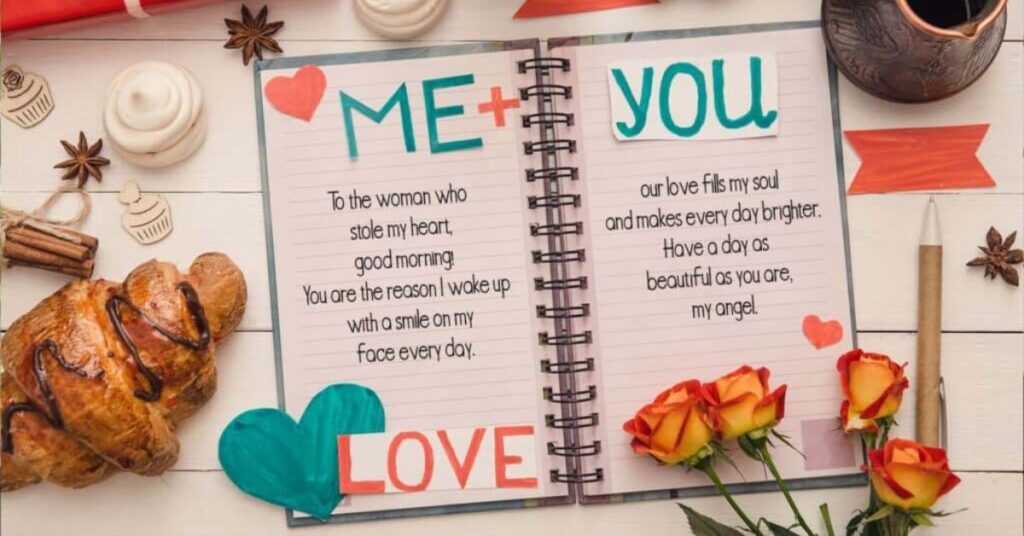 ME+
To the woman who
stole my heart,
good morning!
You are the reason I wake up
with a smile on my
face every day.
LOVE
YOU
our love fills my soul
and makes every day brighter.
Have a day as
beautiful as you are,
my angel.